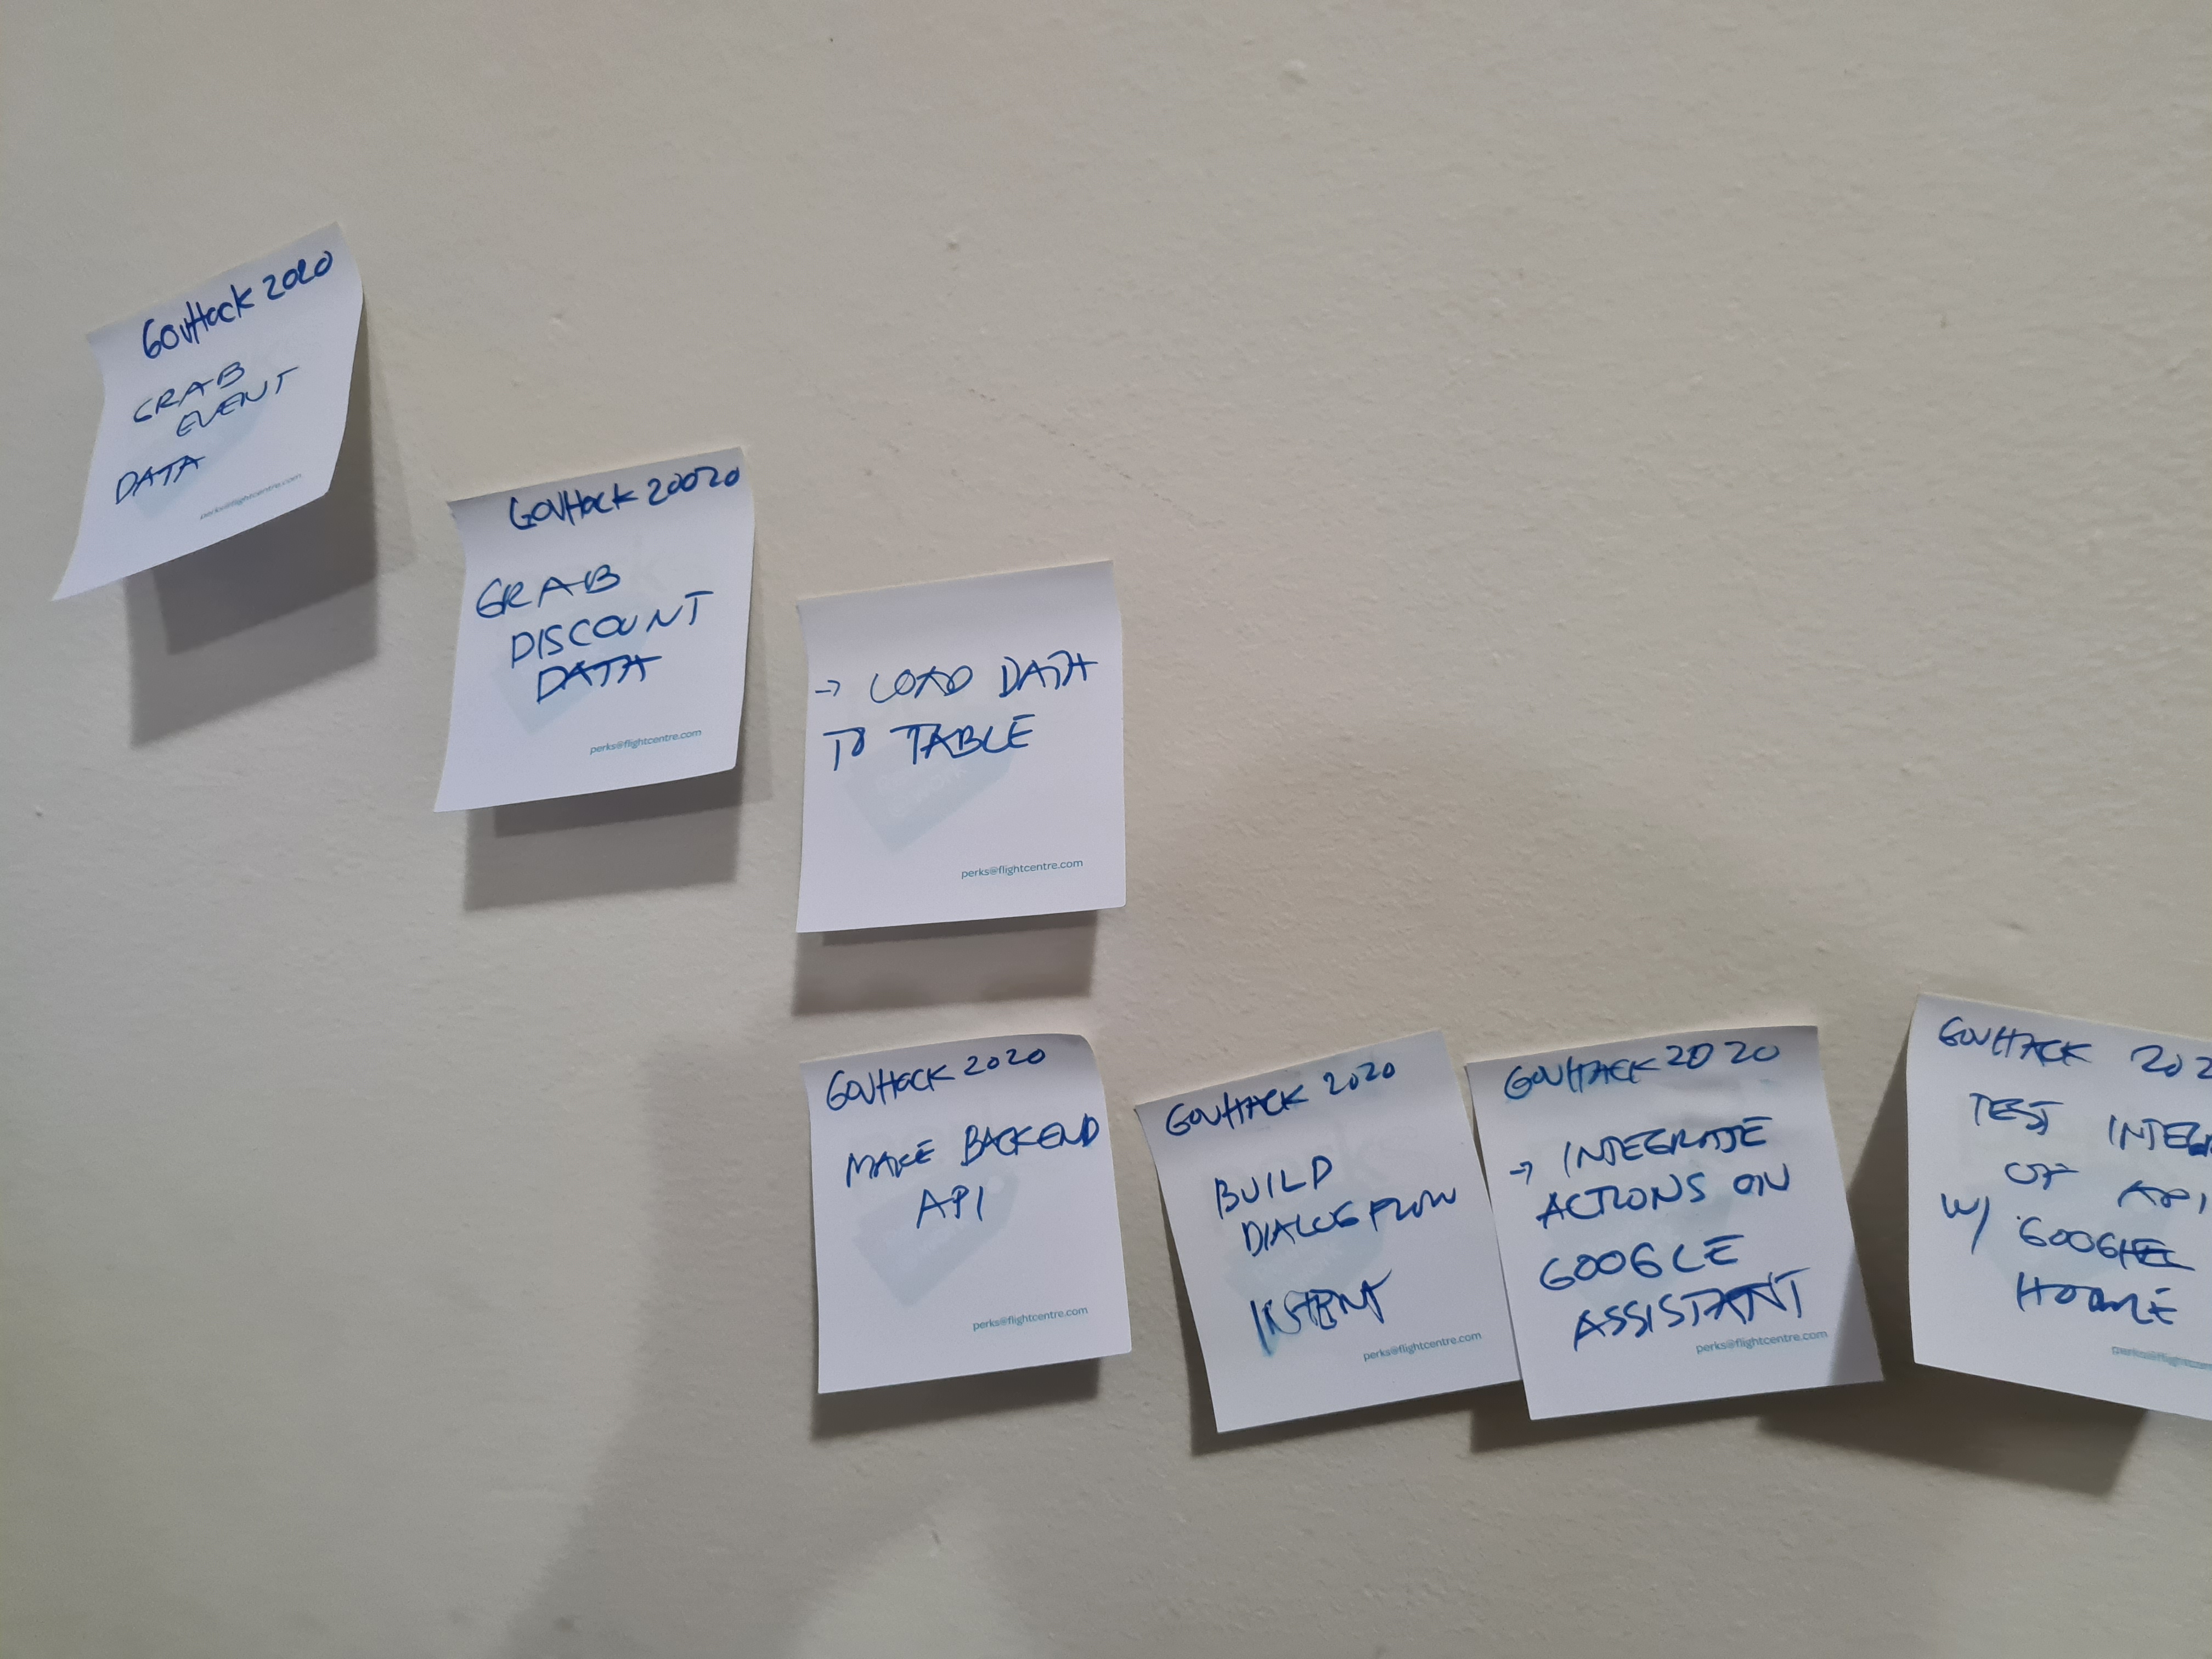 GovHack 2020
GRAB
EVENT
DATA
perks@flightcentre.com
GovHack 20020
GRAB
DISCOUNT
DATA
perks@flightcentre.com
→ LOAD DATA
TO TABLE
perks@flightcentre.com
GovHack 2020
MAKE BACKEND
API
perks@flightcentre.com
GOVHACK 2020
BUILD
DIALOGFLOW
INTENT
perks@flightcentre.com
GOVHACK 2020
→ INTEGRATE
ACTIONS ON
GOOGLE
ASSISTANT
perks@flightcentre.com
GOVHACK 202
TEST INTEG
OF API
W/ GOOGLE
HOME